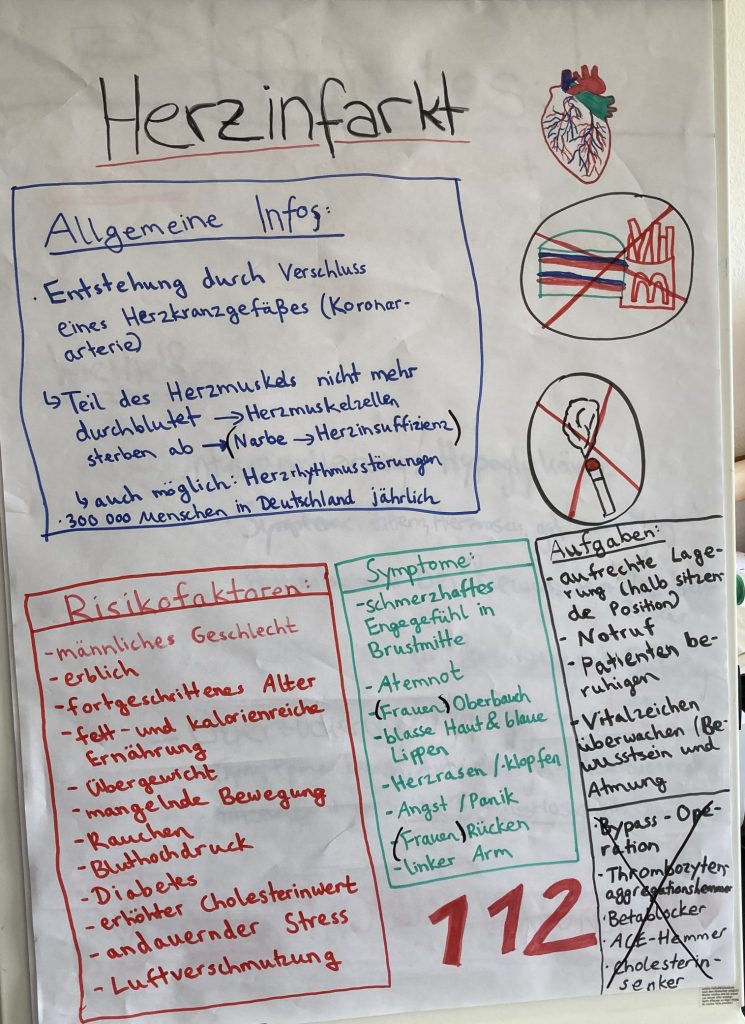 Herzinfarkt
Allgemeine Infos:
· Entstehung durch Verschluss
eines Herzkranzgefäßes (Koronar-
arterie)
↳ Teil des Herzmuskels nicht mehr
durchblutet → Herzmuskelzellen
sterben ab → (Narbe → Herzinsuffizienz)
↳ auch möglich: Herzrhythmusstörungen
· 300 000 Menschen in Deutschland jährlich
Risikofaktoren:
- männliches Geschlecht
- erblich
- fortgeschrittenes Alter
- fett- und kalorienreiche
Ernährung
- Übergewicht
- mangelnde Bewegung
- Rauchen
- Bluthochdruck
- Diabetes
- erhöhter Cholesterinwert
- andauernder Stress
- Luftverschmutzung
Symptome:
- schmerzhaftes
Engegefühl in
Brustmitte
- Atemnot
- (Frauen) Oberbauch
- blasse Haut & blaue
Lippen
- Herzrasen /-klopfen
- Angst / Panik
- (Frauen) Rücken
- linker Arm
112
Aufgaben:
- aufrechte Lage-
rung (halb sitzen
de Position)
- Notruf
- Patienten be-
ruhigen
- Vitalzeichen
überwachen (Be-
wusstsein und
Atmung
· Bypass-Ope-
ration
· Thrombozyten
aggregationshemmer
· Betablocker
· ACE-Hemmer
· Cholesterin-
senker